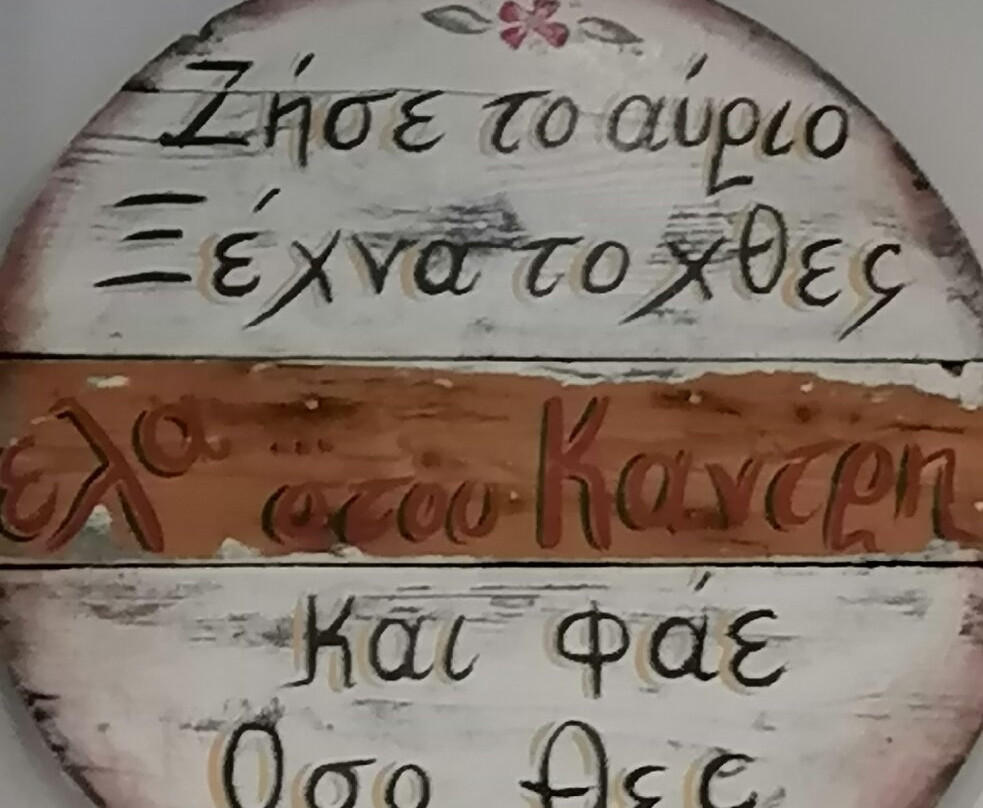 Ζήσε το αύριο
Ξέχνα το χθες
ελα... στου Καντρη
και φάε
Όσο θες